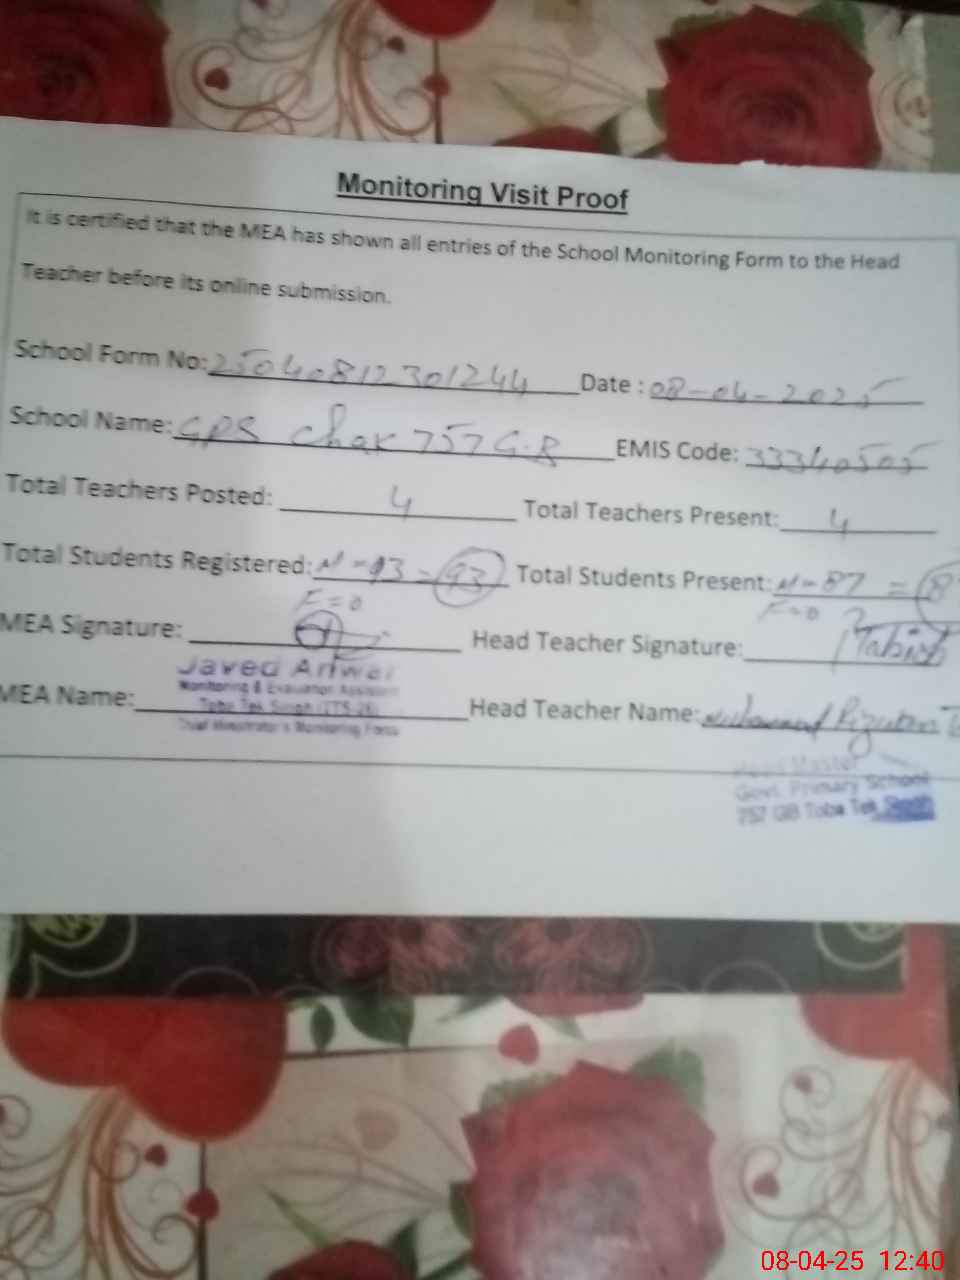 Monitoring Visit Proof
It is certified that the MEA has shown all entries of the School Monitoring Form to the Head
Teacher before its online submission.
School Form No: 25040812301244 Date : 08-04-2025
School Name: GPS Chak 757 G.B EMIS Code: 33340505
Total Teachers Posted: 4 Total Teachers Present: 4
Total Students Registered: M-93 = 93 Total Students Present: M-87 = 8
F=0 F=0
MEA Signature: Head Teacher Signature:
Javed Anwar
Monitoring & Evaluation Assistant
MEA Name: Toba Tek Singh Head Teacher Name: Muhammad
Chief Minister's Monitoring Force
Head Master
Govt. Primary School
757 GB Toba Tek Singh
08-04-25 12:40